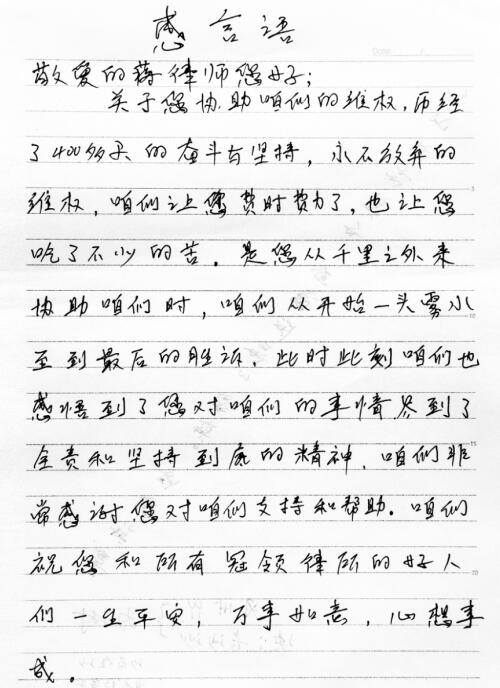 感言语
敬爱的蒋律师您好;
关于您协助咱们的维权,历经
了400多天的奋斗与坚持,永不放弃的
维权,咱们让您费时费力了,也让您
吃了不少的苦。是您从千里之外来
协助咱们时,咱们从开始一头雾水
至到最后的胜诉,此时此刻咱们也
感悟到了您对咱们的事情尽到了
全责和坚持到底的精神,咱们非
常感谢您对咱们支持和帮助。咱们
祝您和所有冠领律所的好人
们一生平安,万事如意,心想事
成。